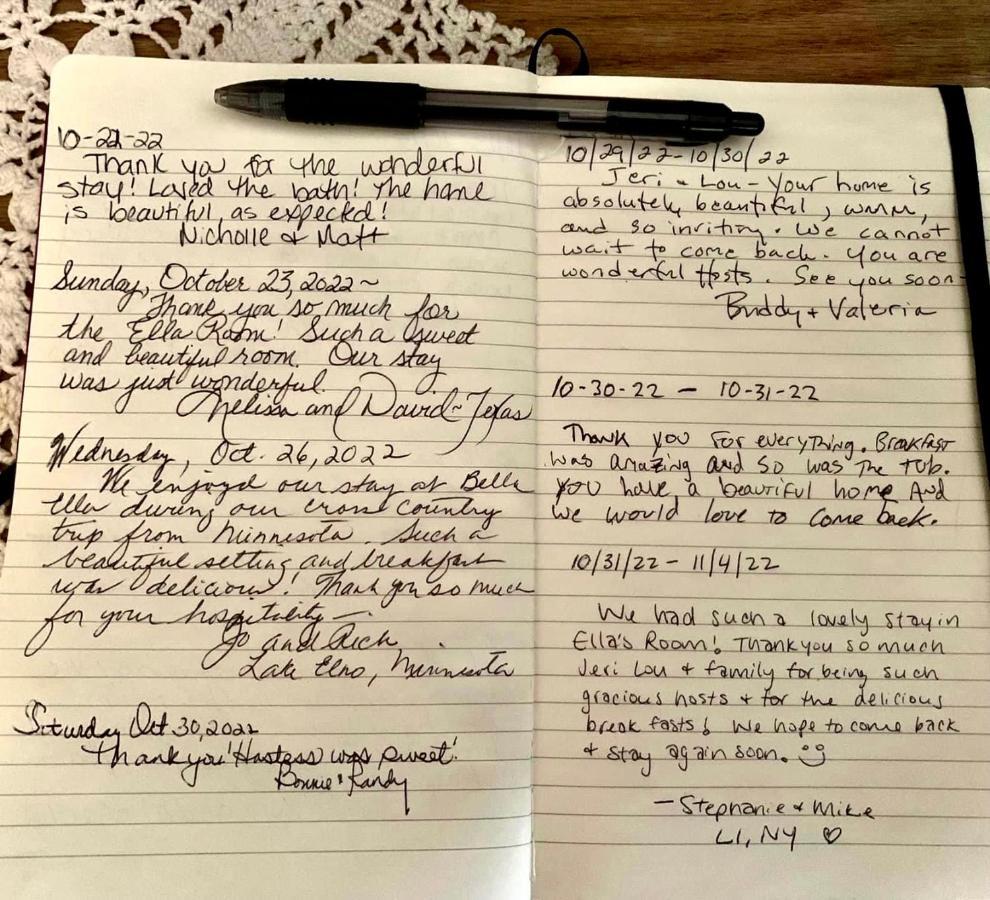 10-22-22
Thank you for the wonderful
stay! Loved the bath! The home
is beautiful, as expected!
Nicholle & Matt
Sunday, October 23, 2022~
Thank you so much for
the Ella Room! Such a sweet
and beautiful room. Our stay
was just wonderful.
Melissa and David~Texas
Wednesday, Oct. 26, 2022
We enjoyed our stay at Bella
Ella during our cross country
trip from Minnesota. Such a
beautiful setting and breakfast
was delicious! Thank you so much
for your hospitality -
Jo and Rich
Lake Elmo, Minnesota
Saturday Oct 30, 2022
Thank you! Hostess was sweet!
Bonnie & Randy
10/29/22-10/30/22
Jeri & Lou - Your home is
absolutely beautiful, warm,
and so inviting. We cannot
wait to come back. You are
wonderful Hosts. See you soon -
Buddy + Valeria
10-30-22 - 10-31-22
Thank you for everything. Breakfast
was amazing and so was the tub.
You have a beautiful home And
we would love to come back.
10/31/22 - 11/4/22
We had such a lovely stay in
Ella's Room! Thank you so much
Jeri Lou & family for being such
gracious hosts & for the delicious
breakfasts! We hope to come back
& stay again soon.
-Stephanie & Mike
LI, NY ♡